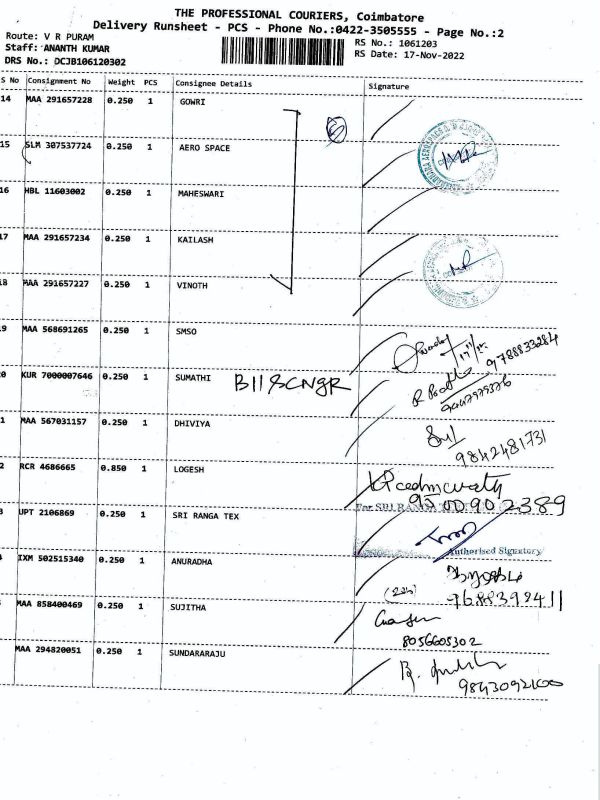 THE PROFESSIONAL COURIERS, Coimbatore
Delivery Runsheet - PCS - Phone No.:0422-3505555 - Page No.:2
Route: V R PURAM
Staff: ANANTH KUMAR
DRS No.: DCJB106120302
RS No.: 1061203
RS Date: 17-Nov-2022
S No Consignment No Weight PCS Consignee Details Signature
14 MAA 291657228 0.250 1 GOWRI
15 SLM 307537724 0.250 1 AERO SPACE
16 HBL 11603002 0.250 1 MAHESWARI
17 MAA 291657234 0.250 1 KAILASH
18 MAA 291657227 0.250 1 VINOTH
9 MAA 568691265 0.250 1 SMSO
9788833284
0 KUR 7000007646 0.250 1 SUMATHI
1 MAA 567031157 0.250 1 DHIVIYA
9842481731
2 RCR 4686665 0.850 1 LOGESH
9500902389
3 UPT 2106869 0.250 1 SRI RANGA TEX
For SRI RANGA
Authorised Signatory
IXM 502515340 0.250 1 ANURADHA
9688392411
MAA 858400469 0.250 1 SUJITHA
8056605302
MAA 294820051 0.250 1 SUNDARARAJU
9843092100